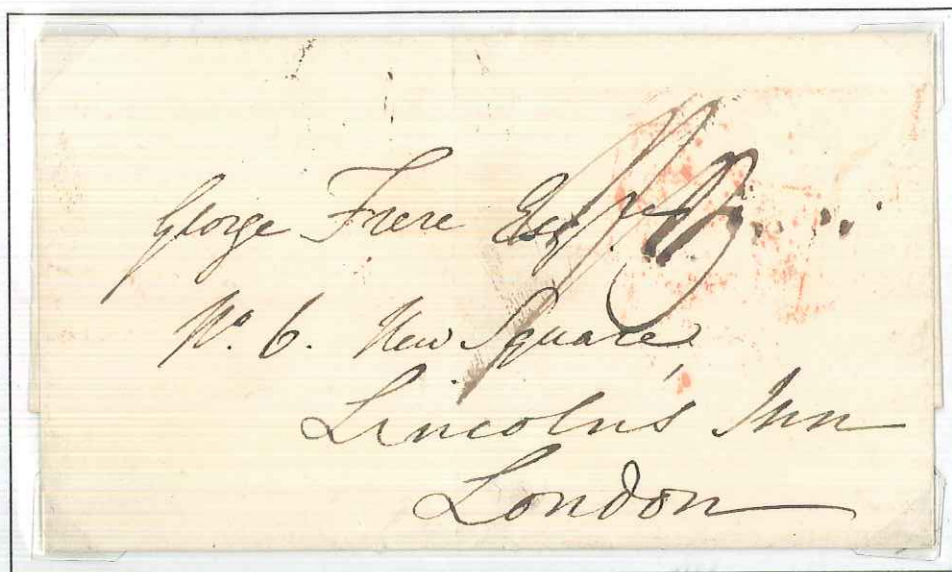 George Frere Esqr
No. 6. New Square
Lincoln's Inn
London